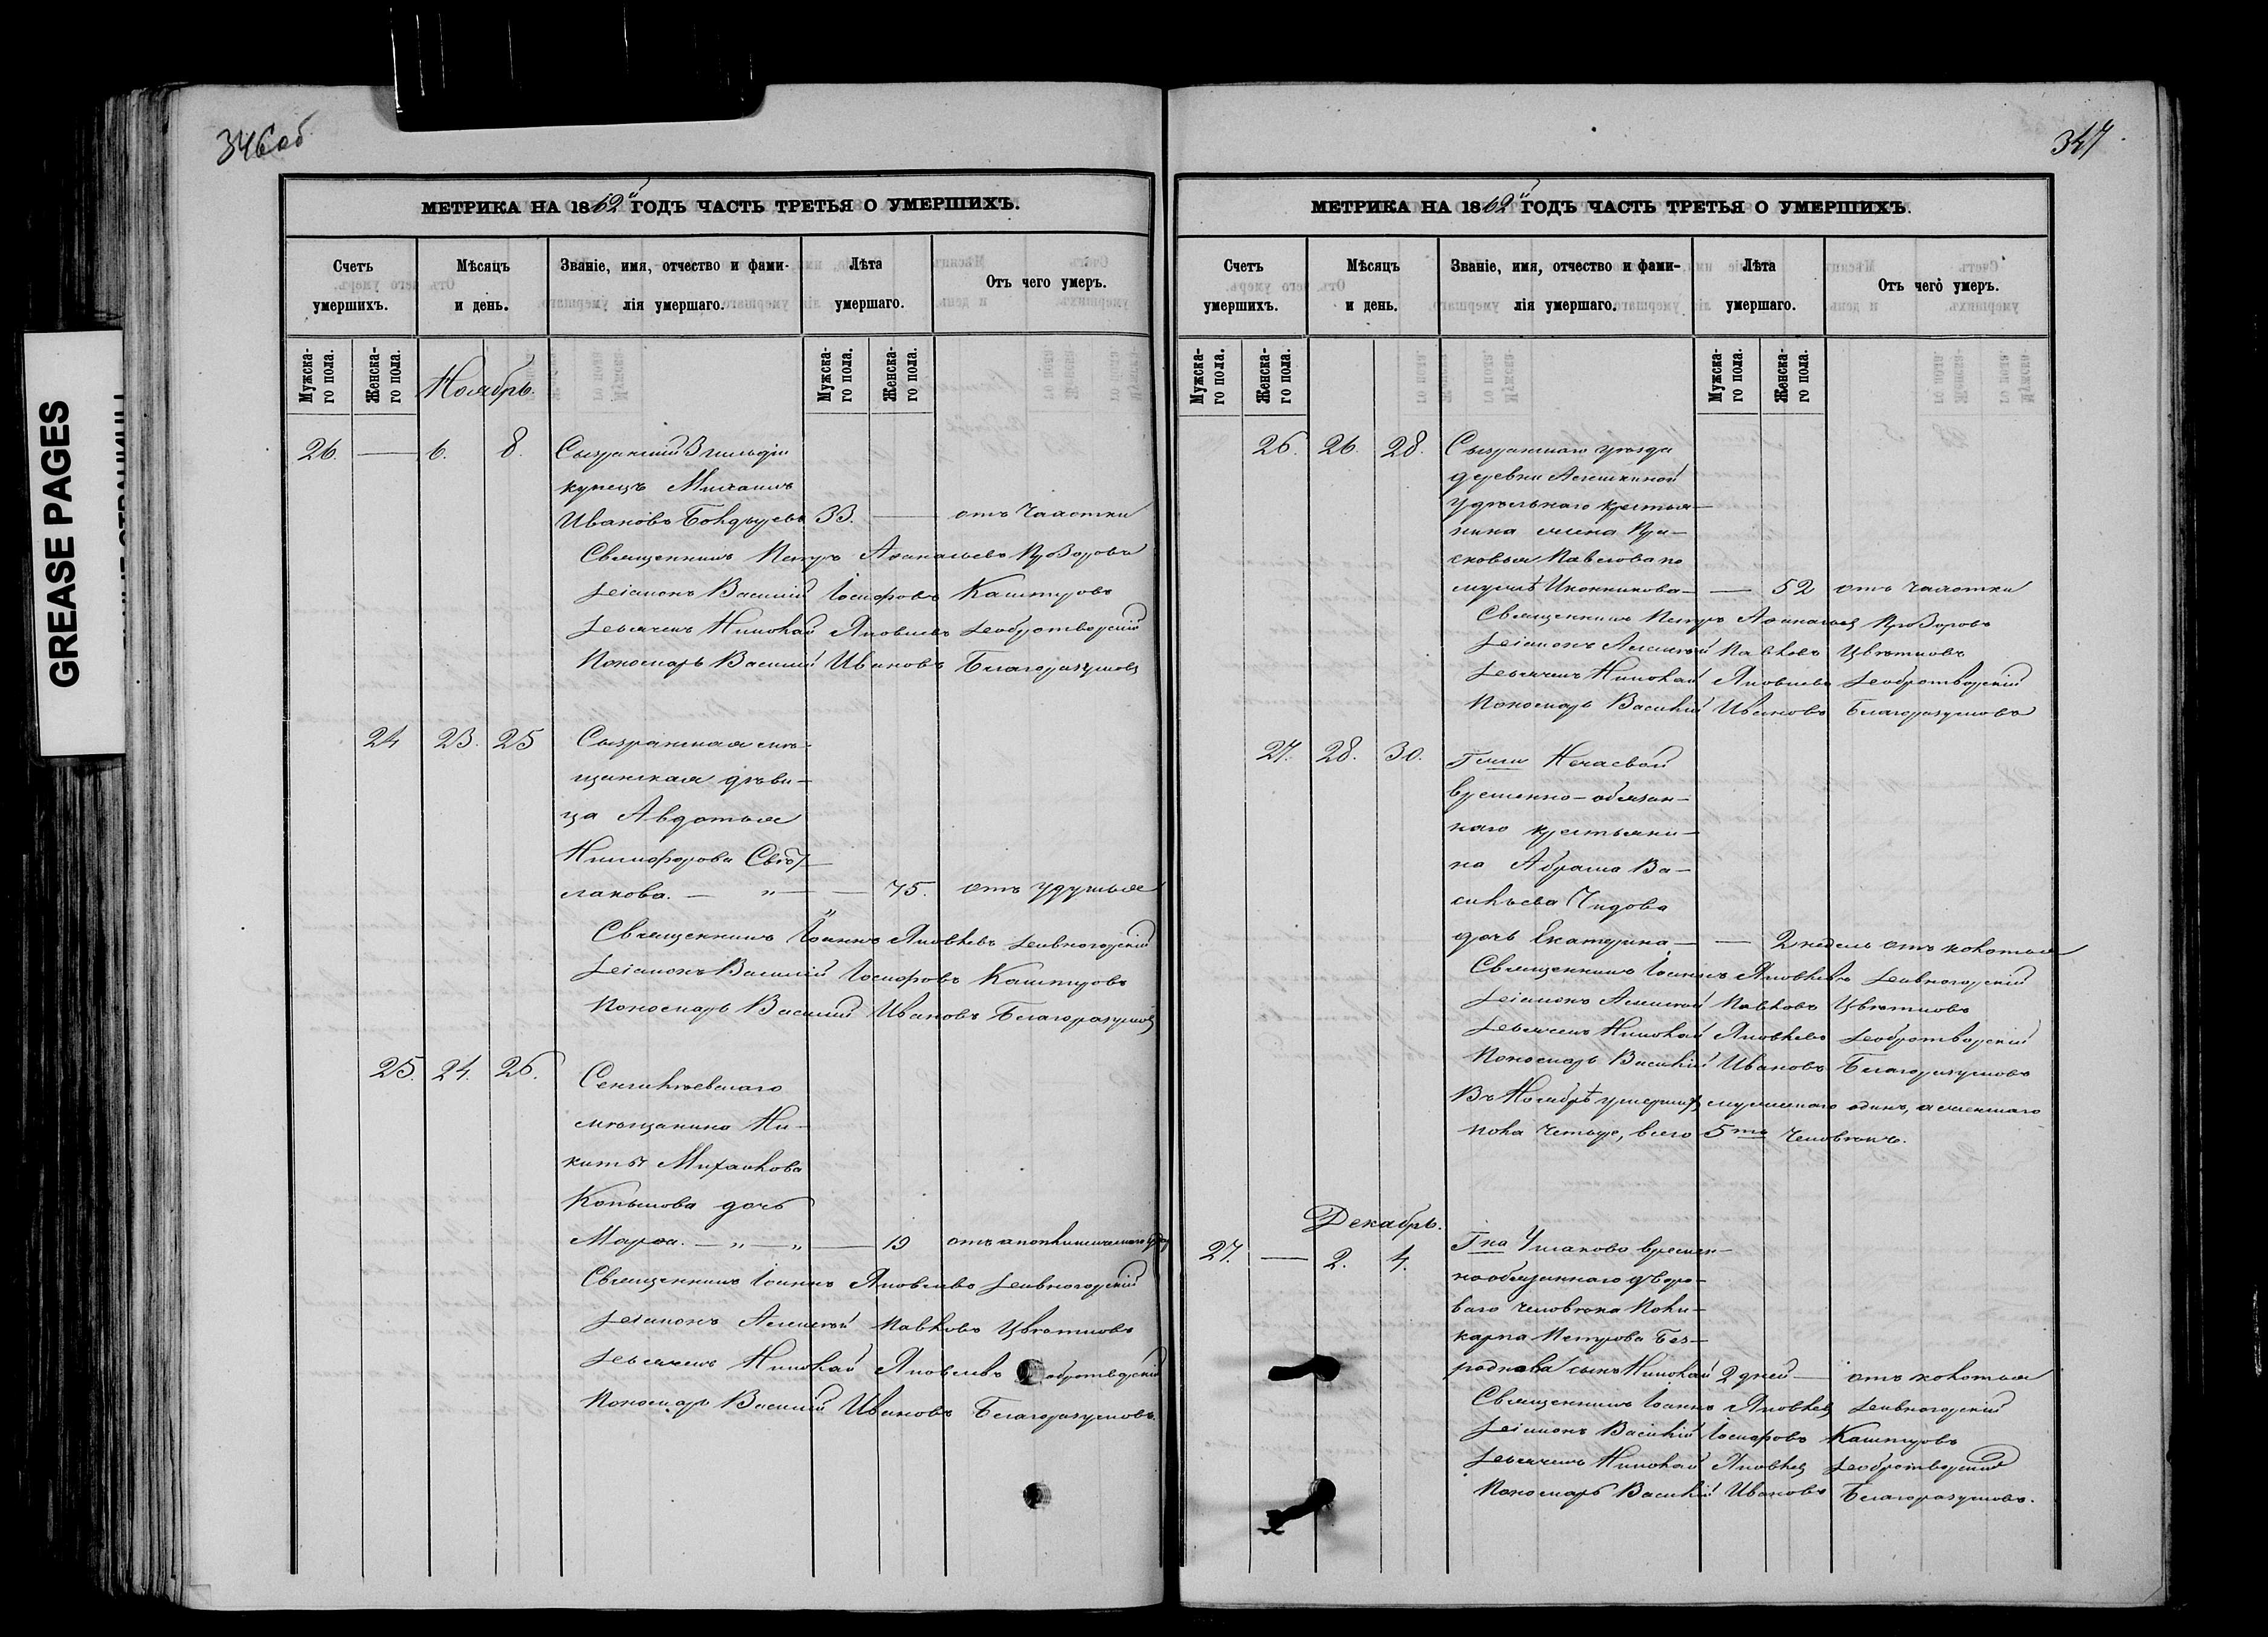 346об
МЕТРИКА НА 1862й ГОДЪ ЧАСТЬ ТРЕТЬЯ О УМЕРШИХЪ.
Счетъ умершихъ.
Мѣсяцъ и день.
Званіе, имя, отчество и фами-
лія умершаго.
Лѣта умершаго.
Отъ чего умеръ.
Мужска-
го пола.
Женска-
го пола.
Ноябрь.
Мужска-
го пола.
Женска-
го пола.
26. — 6. 8. Сызранскій 3 гильдіи
купецъ Михаилъ
Ивановъ Бондыревъ 33. — отъ чахотки
Священникъ Петръ Аѳанасьевъ Прозоровъ
Діаконъ Василій Іосифовъ Каштуровъ
Дьячекъ Николай Яковлевъ Добротворскій
Пономарь Василій Ивановъ Благоразумовъ
24 23. 25 Сызранская мѣ-
щанская дѣви-
ца Авдотья
Никифорова
лакова. — „ — — 75. отъ удушья
Священникъ Іоаннъ Яковлевъ Дивногорскій
Діаконъ Василій Іосифовъ Каштуровъ
Пономарь Василій Ивановъ Благоразумовъ
25. 24. 26. Сенгилѣевскаго
мѣщанина Ни-
киты Михайлова
Копылова дочь
Марѳа. — „ — „ — 19 отъ апоплексическаго удара
Священникъ Іоаннъ Яковлевъ Дивногорскій
Діаконъ Алексѣй Павловъ Цвѣтковъ
Дьячекъ Николай Яковлевъ Добротворскій
Пономарь Василій Ивановъ Благоразумовъ.
347
МЕТРИКА НА 1862й ГОДЪ ЧАСТЬ ТРЕТЬЯ О УМЕРШИХЪ.
Счетъ умершихъ.
Мѣсяцъ и день.
Званіе, имя, отчество и фами-
лія умершаго.
Лѣта умершаго.
Отъ чего умеръ.
Мужска-
го пола.
Женска-
го пола.
Мужска-
го пола.
Женска-
го пола.
26. 26. 28. Сызранскаго уѣзда
деревни Алешкиной
удѣльнаго крестья-
нина жена Пра-
сковья Павлова по
мужѣ Иконникова — — 52 отъ чахотки
Священникъ Петръ Аѳанасьевъ Прозоровъ
Діаконъ Алексѣй Павловъ Цвѣтковъ
Дьячекъ Николай Яковлевъ Добротворскій
Пономарь Василій Ивановъ Благоразумовъ
27. 28. 30. Гжи Нечаевой
временно-обязан-
наго крестьяни-
на Абрама Ва-
сильева Чидова
дочь Екатерина — — 2 недель отъ колотья
Священникъ Іоаннъ Яковлевъ Дивногорскій
Діаконъ Алексѣй Павловъ Цвѣтковъ
Дьячекъ Николай Яковлевъ Добротворскій
Пономарь Василій Ивановъ Благоразумовъ
Въ Ноябрѣ умершихъ мужскаго одинъ, а женскаго
пола четыре, всего 5ть человѣкъ.
Декабрь.
27. — 2. 4. Гна Ушакова времен-
нообязаннаго дворо-
ваго человѣка Поли-
карпа Петрова Без-
роднова сынъ Николай 2 дней — отъ колотья
Священникъ Іоаннъ Яковлевъ Дивногорскій
Діаконъ Василій Іосифовъ Каштуровъ
Дьячекъ Николай Яковлевъ Добротворскій
Пономарь Василій Ивановъ Благоразумовъ.
GREASE PAGES